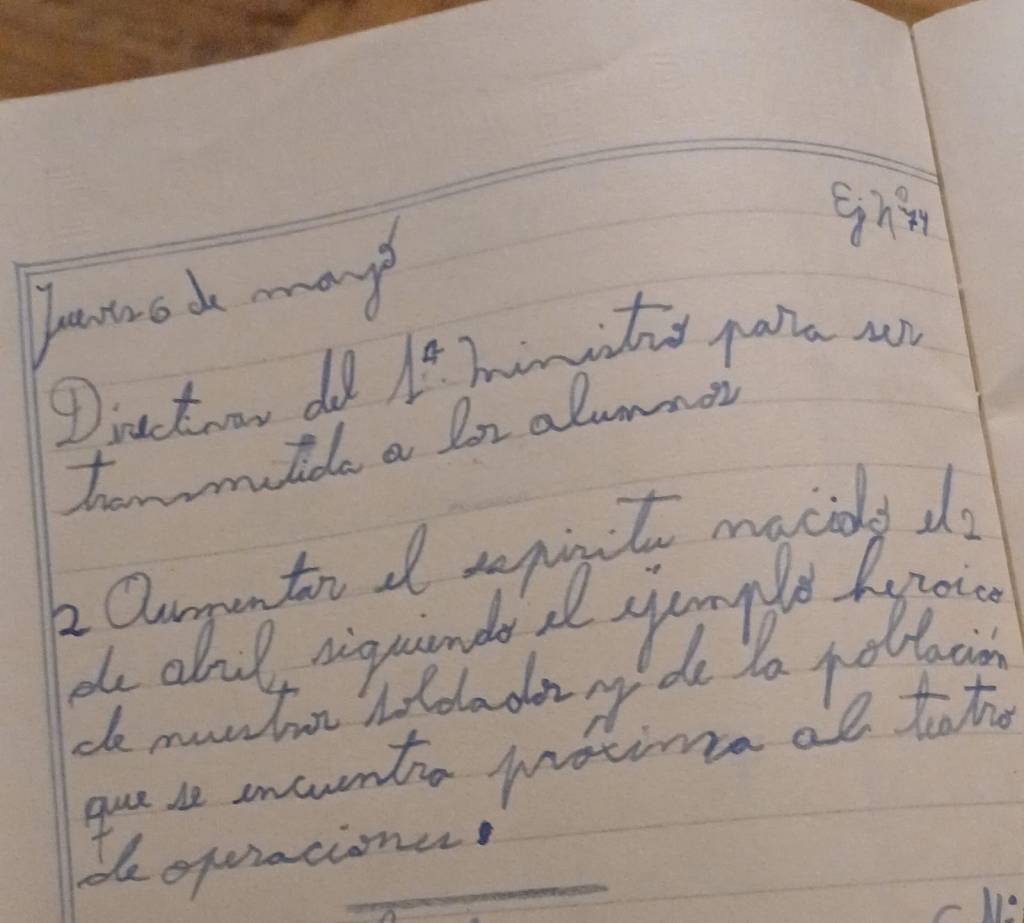 Ej nº 74
Jueves 6 de mayo
Directivas del 1º. ministro para ser
transmitida a los alumnos
2 Aumentar el espiritu nacido el 2
de abril, siguiendo el ejemplo heroico
de nuestros soldados y de la población
que se encuentra próxima al teatro
de operaciones.